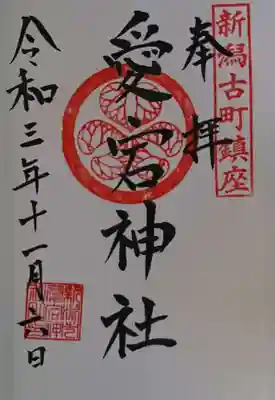 新潟古町鎮座
奉拝
愛宕神社
令和三年十一月六日